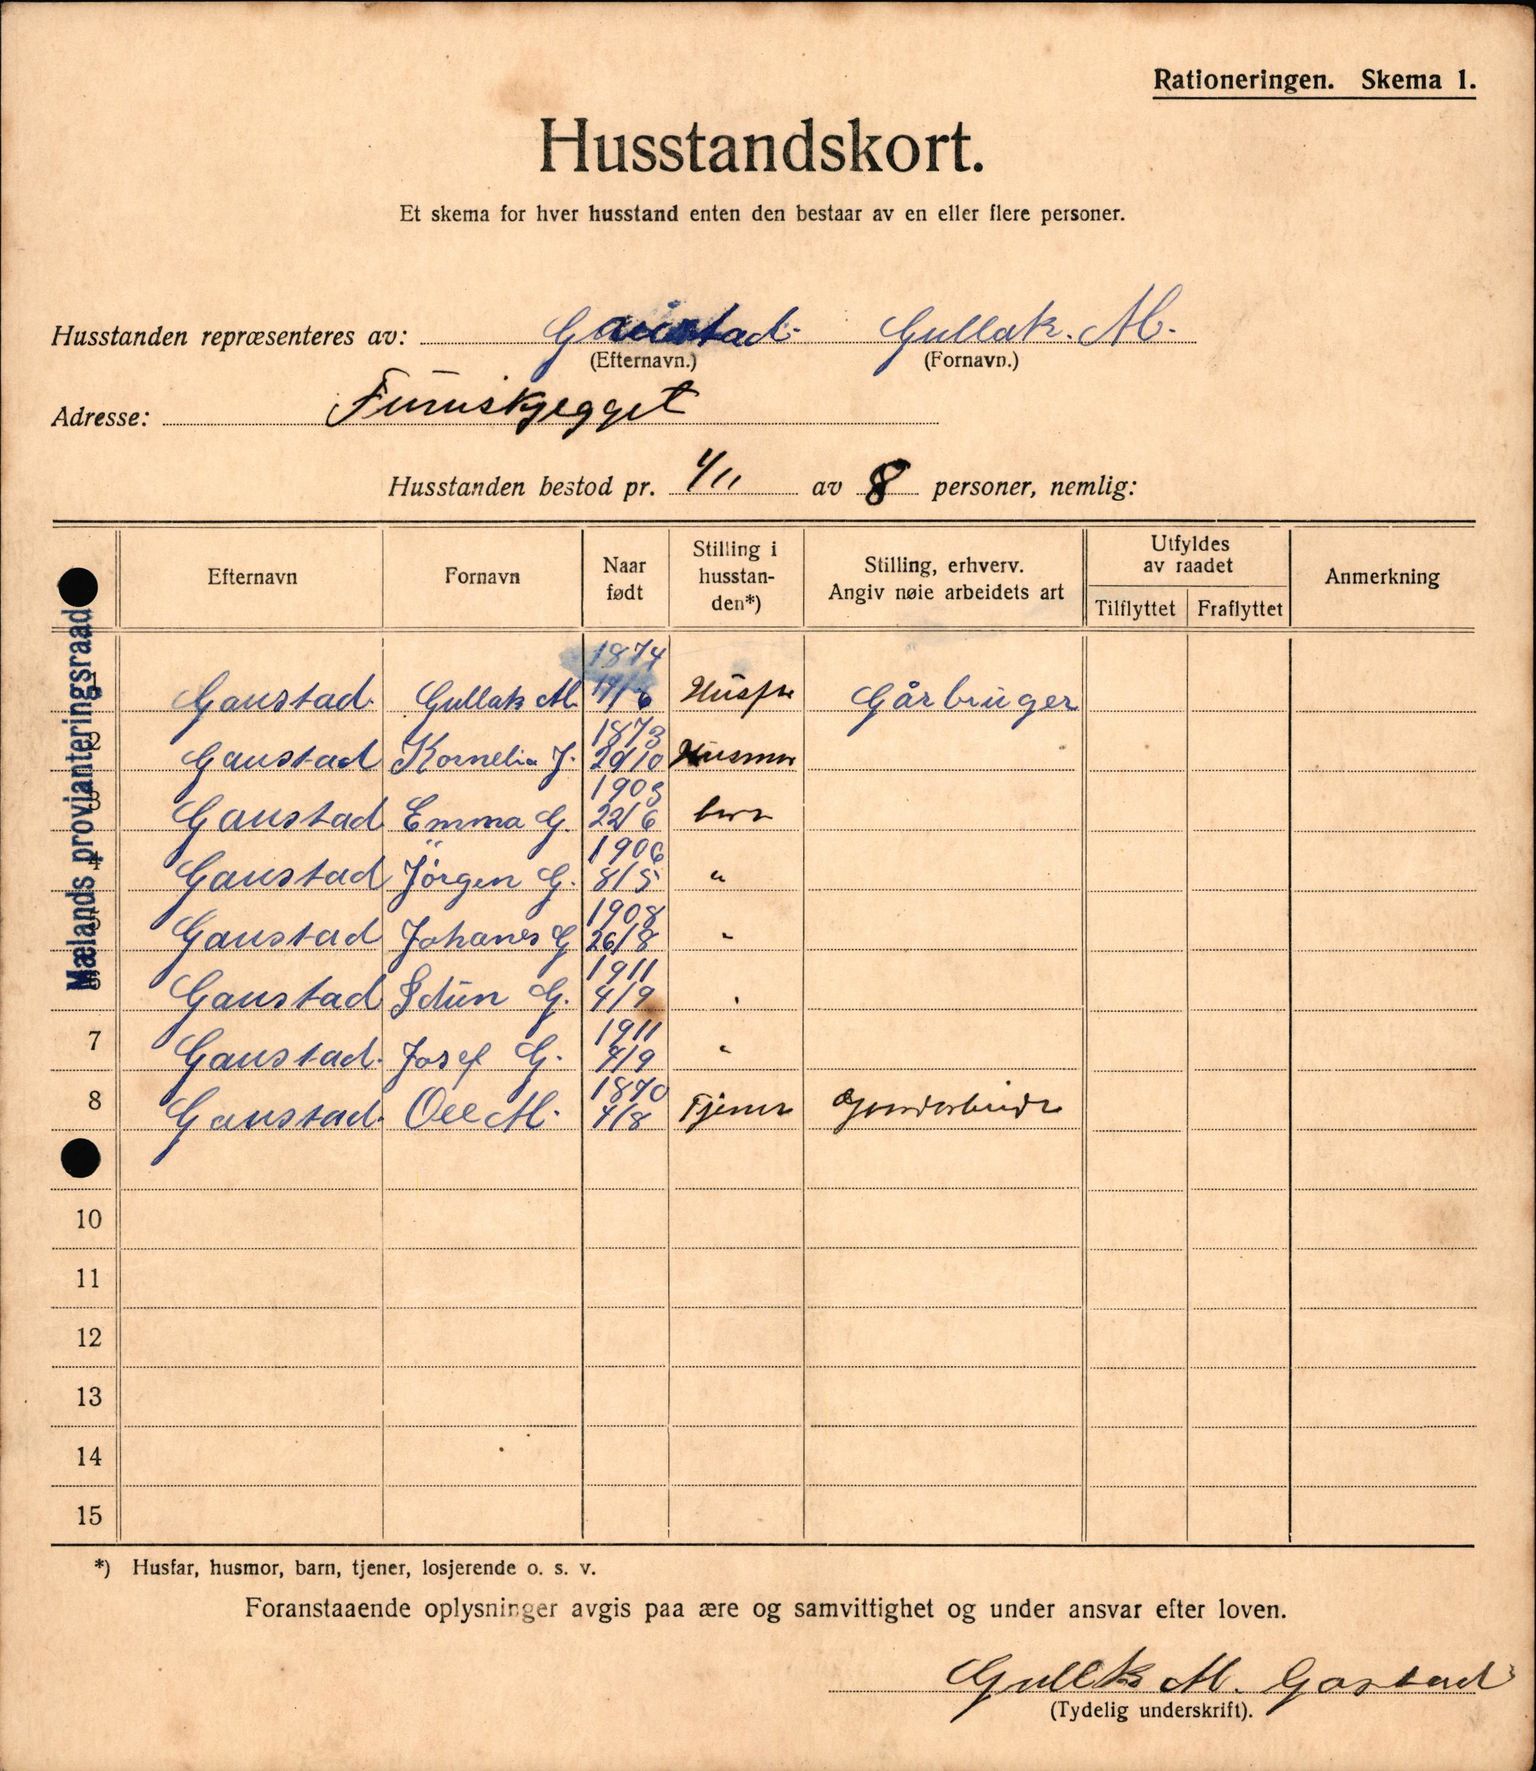 Rationeringen. Skema 1.
Husstandskort.
Et skema for hver husstand enten den bestaar av en eller flere personer.
Husstanden repræsenteres av: Gaustad. Gullak. M.
(Efternavn.) (Fornavn.)
Adresse: Furuskjegget
Husstanden bestod pr. 4/11 av 8 personer, nemlig:
Efternavn Fornavn Naar født Stilling i husstan-den*) Stilling, erhverv. Angiv nøie arbeidets art Utfyldes av raadet Tilflyttet Fraflyttet Anmerkning
Mælands provianteringsraad
1874
Gaustad. Gullak M. 19/6 Husfr Gårbruger
1873
2 Gaustad Kornelia J. 29/10 Husmor
1903
3 Gaustad Emma G. 22/6 barn
1906
4 Gaustad Jörgen G. 8/5 "
1908
5 Gaustad Johanes G 26/8 "
1911
Gaustad Idun G. 4/9 "
1911
7 Gaustad. Josef G. 4/9 "
1870
8 Gaustad. Ole M. 4/8 Tjener
10
11
12
13
14
15
*) Husfar, husmor, barn, tjener, losjerende o. s. v.
Foranstaaende oplysninger avgis paa ære og samvittighet og under ansvar efter loven.
Gullk M. Gostad
(Tydelig underskrift).